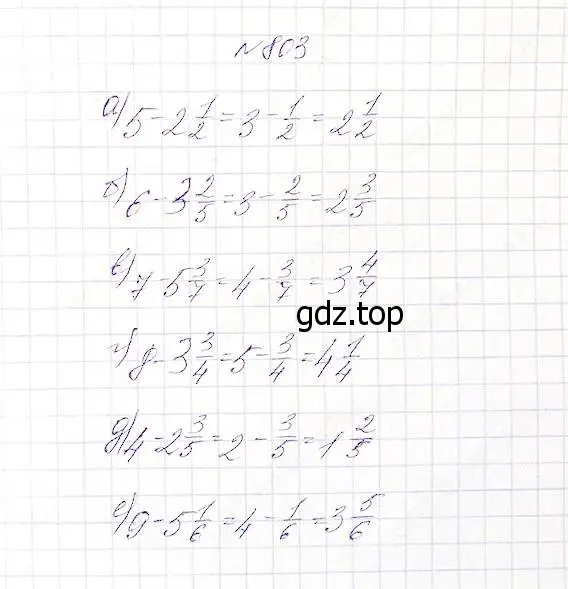 №803
а) 5 - 2 1/2 = 3 - 1/2 = 2 1/2
б) 6 - 3 2/5 = 3 - 2/5 = 2 3/5
в) 7 - 5 3/7 = 4 - 3/7 = 3 4/7
gdz.top
г) 8 - 3 3/4 = 5 - 3/4 = 4 1/4
д) 4 - 2 3/5 = 2 - 3/5 = 1 2/5
е) 9 - 5 1/6 = 4 - 1/6 = 3 5/6